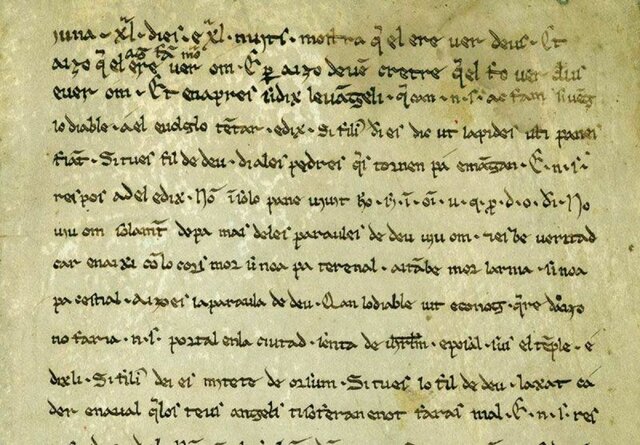 iuna · xl · dies · e · xl · nuits · mostra q̄ el ere ver deus · Et
aizo q̄ el ag fā mō ere ver om · E ꝑ aizo devē creire q̄el fo ver dius
e ver om · Et enapres si dix levāgeli · q̄ can · n · s · ac fam si vēg
lo diable · a el e uolg lo tētar · e dix · Si fili᾽ di es dic ut lapides isti panes
fiāt · Si tu es fil de deu · di a les pedres q̄s tornen pa e māgan · E · n · s ·
respos ad el e dix · Nō ī solo pane uiuit ho · s · ī · oī · u · q · p · d · o · dī · No
uiu om solamt̄ de pa mas de les paraules de deu uiu om · ies be veritad
car enaixi cō lo cors mor si no a pa terenal · aitābe mor larma · si no a
pa cestial · Aizo es la paraula de deu · Qan lo diable uit e conog · q̄re d aizo
no faria · n · s · portal en la ciutad · sēnta de · e poial · sus el tēple · e
dix li · Si fili᾽ dei es mitete de orsum · Si tu es lo fil de deu · laxat ca
der en aual q̄ los teus angels ti soferan e not faras mal · E · n · s · res